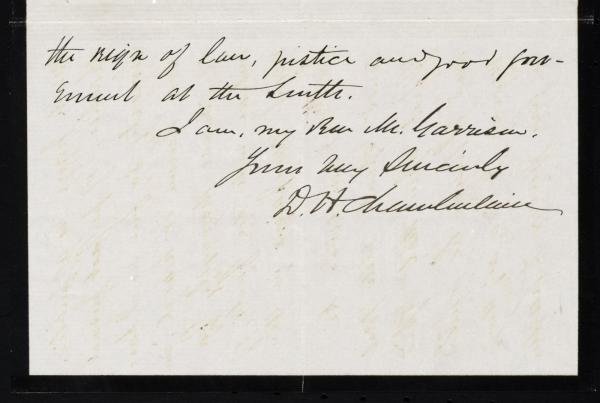 the reign of law, justice and good gov-
ernment at the South.
I am, my Dear Mr. Garrison,
Yours very Sincerely
D. H. Chamberlain